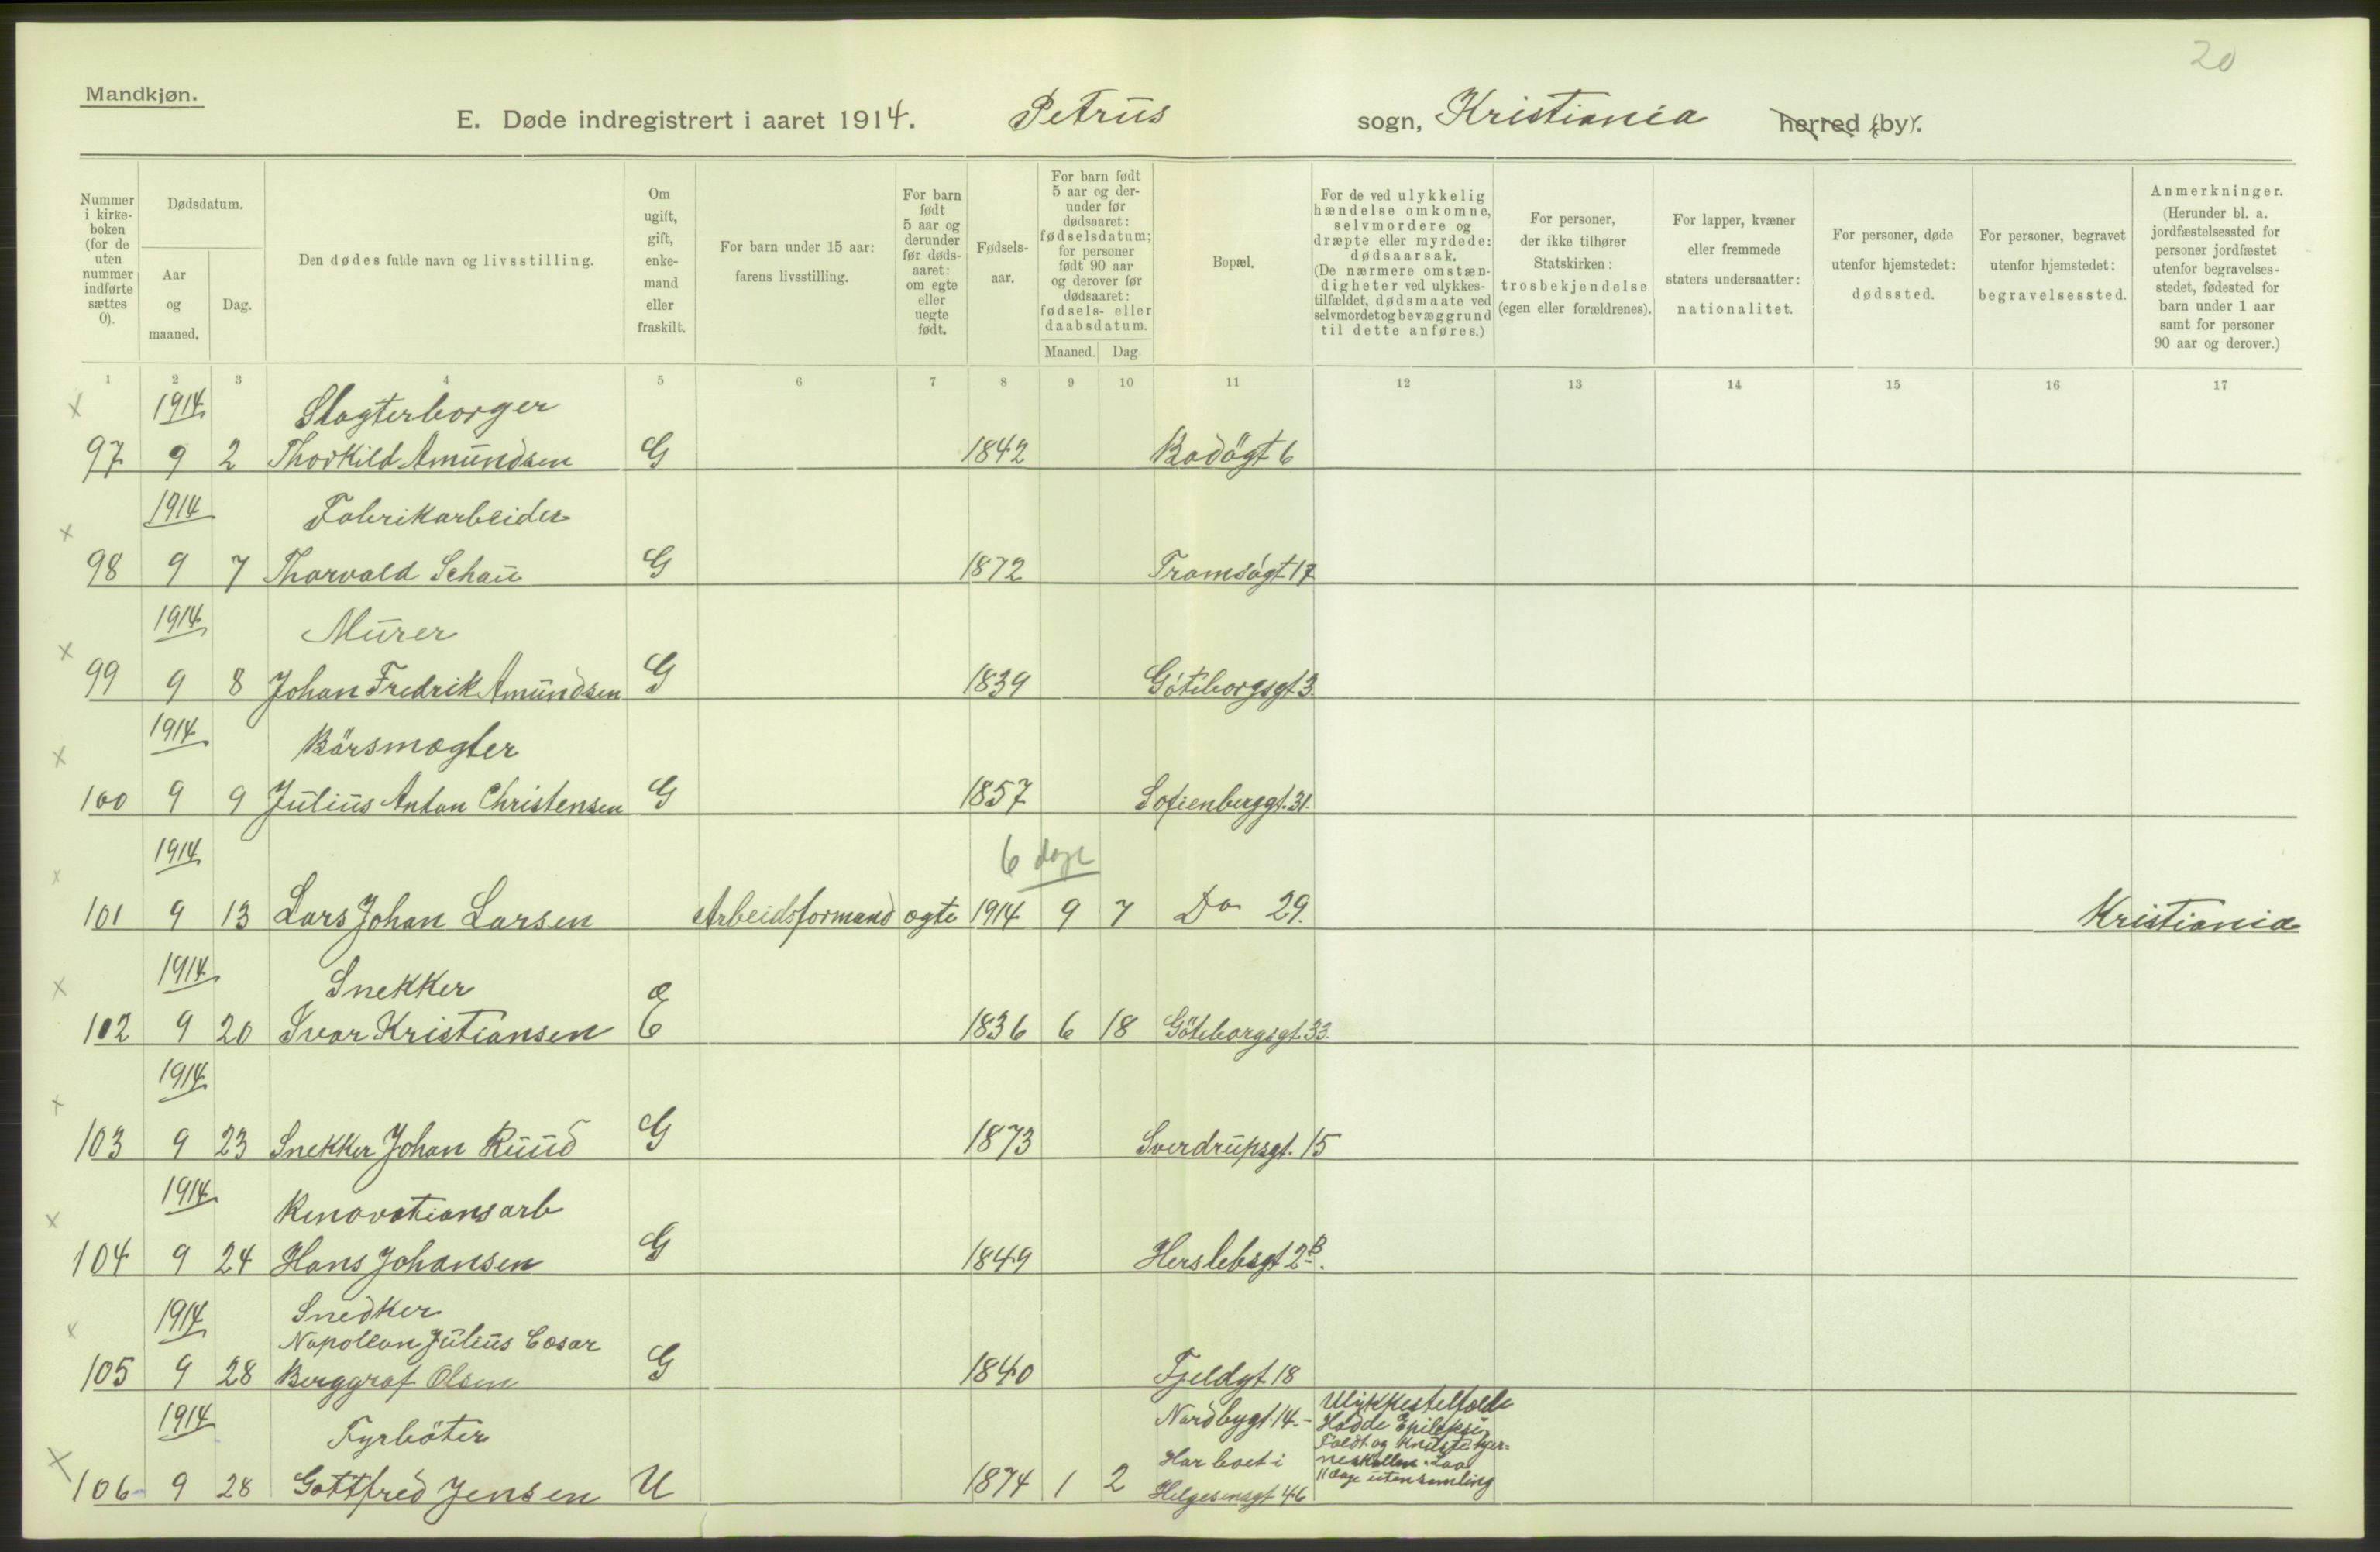 20
Mandkjøn.
E. Døde indregistrert i aaret 1914. Petrus sogn, Kristiania herred (by).
Nummer i kirkeboken (for de uten nummer indførte sættes 0).
Dødsdatum.
Aar og maaned.
Dag.
Den dødes fulde navn og livsstilling.
Om ugift, gift, enkemand eller fraskilt.
For barn under 15 aar: farens livsstilling.
For barn født 5 aar og derunder før dødsaaret: om egte eller uegte født.
Fødselsaar.
For barn født 5 aar og derunder før dødsaaret: fødselsdatum; for personer født 90 aar og derover før dødsaaret: fødsels- eller daabsdatum.
Maaned. Dag.
Bopæl.
For de ved ulykkelig hændelse omkomne, selvmordere og dræpte eller myrdede: dødsaarsak. (De nærmere omstændigheter ved ulykkestilfældet, dødsmaate ved selvmordet og bevæggrund til dette anføres.)
For personer, der ikke tilhører Statskirken: trosbekjendelse (egen eller forældrenes).
For lapper, kvæner eller fremmede staters undersaatter: nationalitet.
For personer, døde utenfor hjemstedet: dødssted.
For personer, begravet utenfor hjemstedet: begravelsessted.
Anmerkninger. (Herunder bl. a. jordfæstelsessted for personer jordfæstet utenfor begravelsesstedet, fødested for barn under 1 aar samt for personer 90 aar og derover.)
1 2 3 4 5 6 7 8 9 10 11 12 13 14 15 16 17
x 1914 Slagterborger
97 9 2 Thorkild Amundsen G 1842 Bodögt 6
1914 Fabrikarbeider
x
98 9 7 Thorvald Schau G 1872 Tromsögt 17
1914 Murer
x
99 9 8 Johan Fredrik Amundsen G 1839 Göteborgsgt 3.
1914 Börsmægler
x
100 9 9 Julius Anton Christensen G 1857 Sofienberggt. 31.
1914 6 dage
x
101 9 13 Lars Johan Larsen Arbeidsformand ægte 1914 9 7 Do 29. Kristiania
1914 Snekker
x
102 9 20 Ivar Kristiansen E 1836 6 18 Göteborgsgt. 33.
1914
x
103 9 23 Snekker Johan Ruud G 1873 Sverdrupsgt. 15
1914 Renovationsarb
x
104 9 24 Hans Johansen G 1849 Herslebsgt 2B.
1914 Snedker
x Napoleon Julius Cæsar
105 9 28 Berggraf Olsen G 1840 Fjeldgt 18
1914 Fyrböter
x
106 9 28 Gottfred Jensen U 1874 1 2
Nordbygt. 14. -
Har boet i
Helgesensgt 46
Ulykkestelfælde
Hadde Epilepsi,
Faldt og knuste hjer=
neskallen. Laa
11 dage uten samling